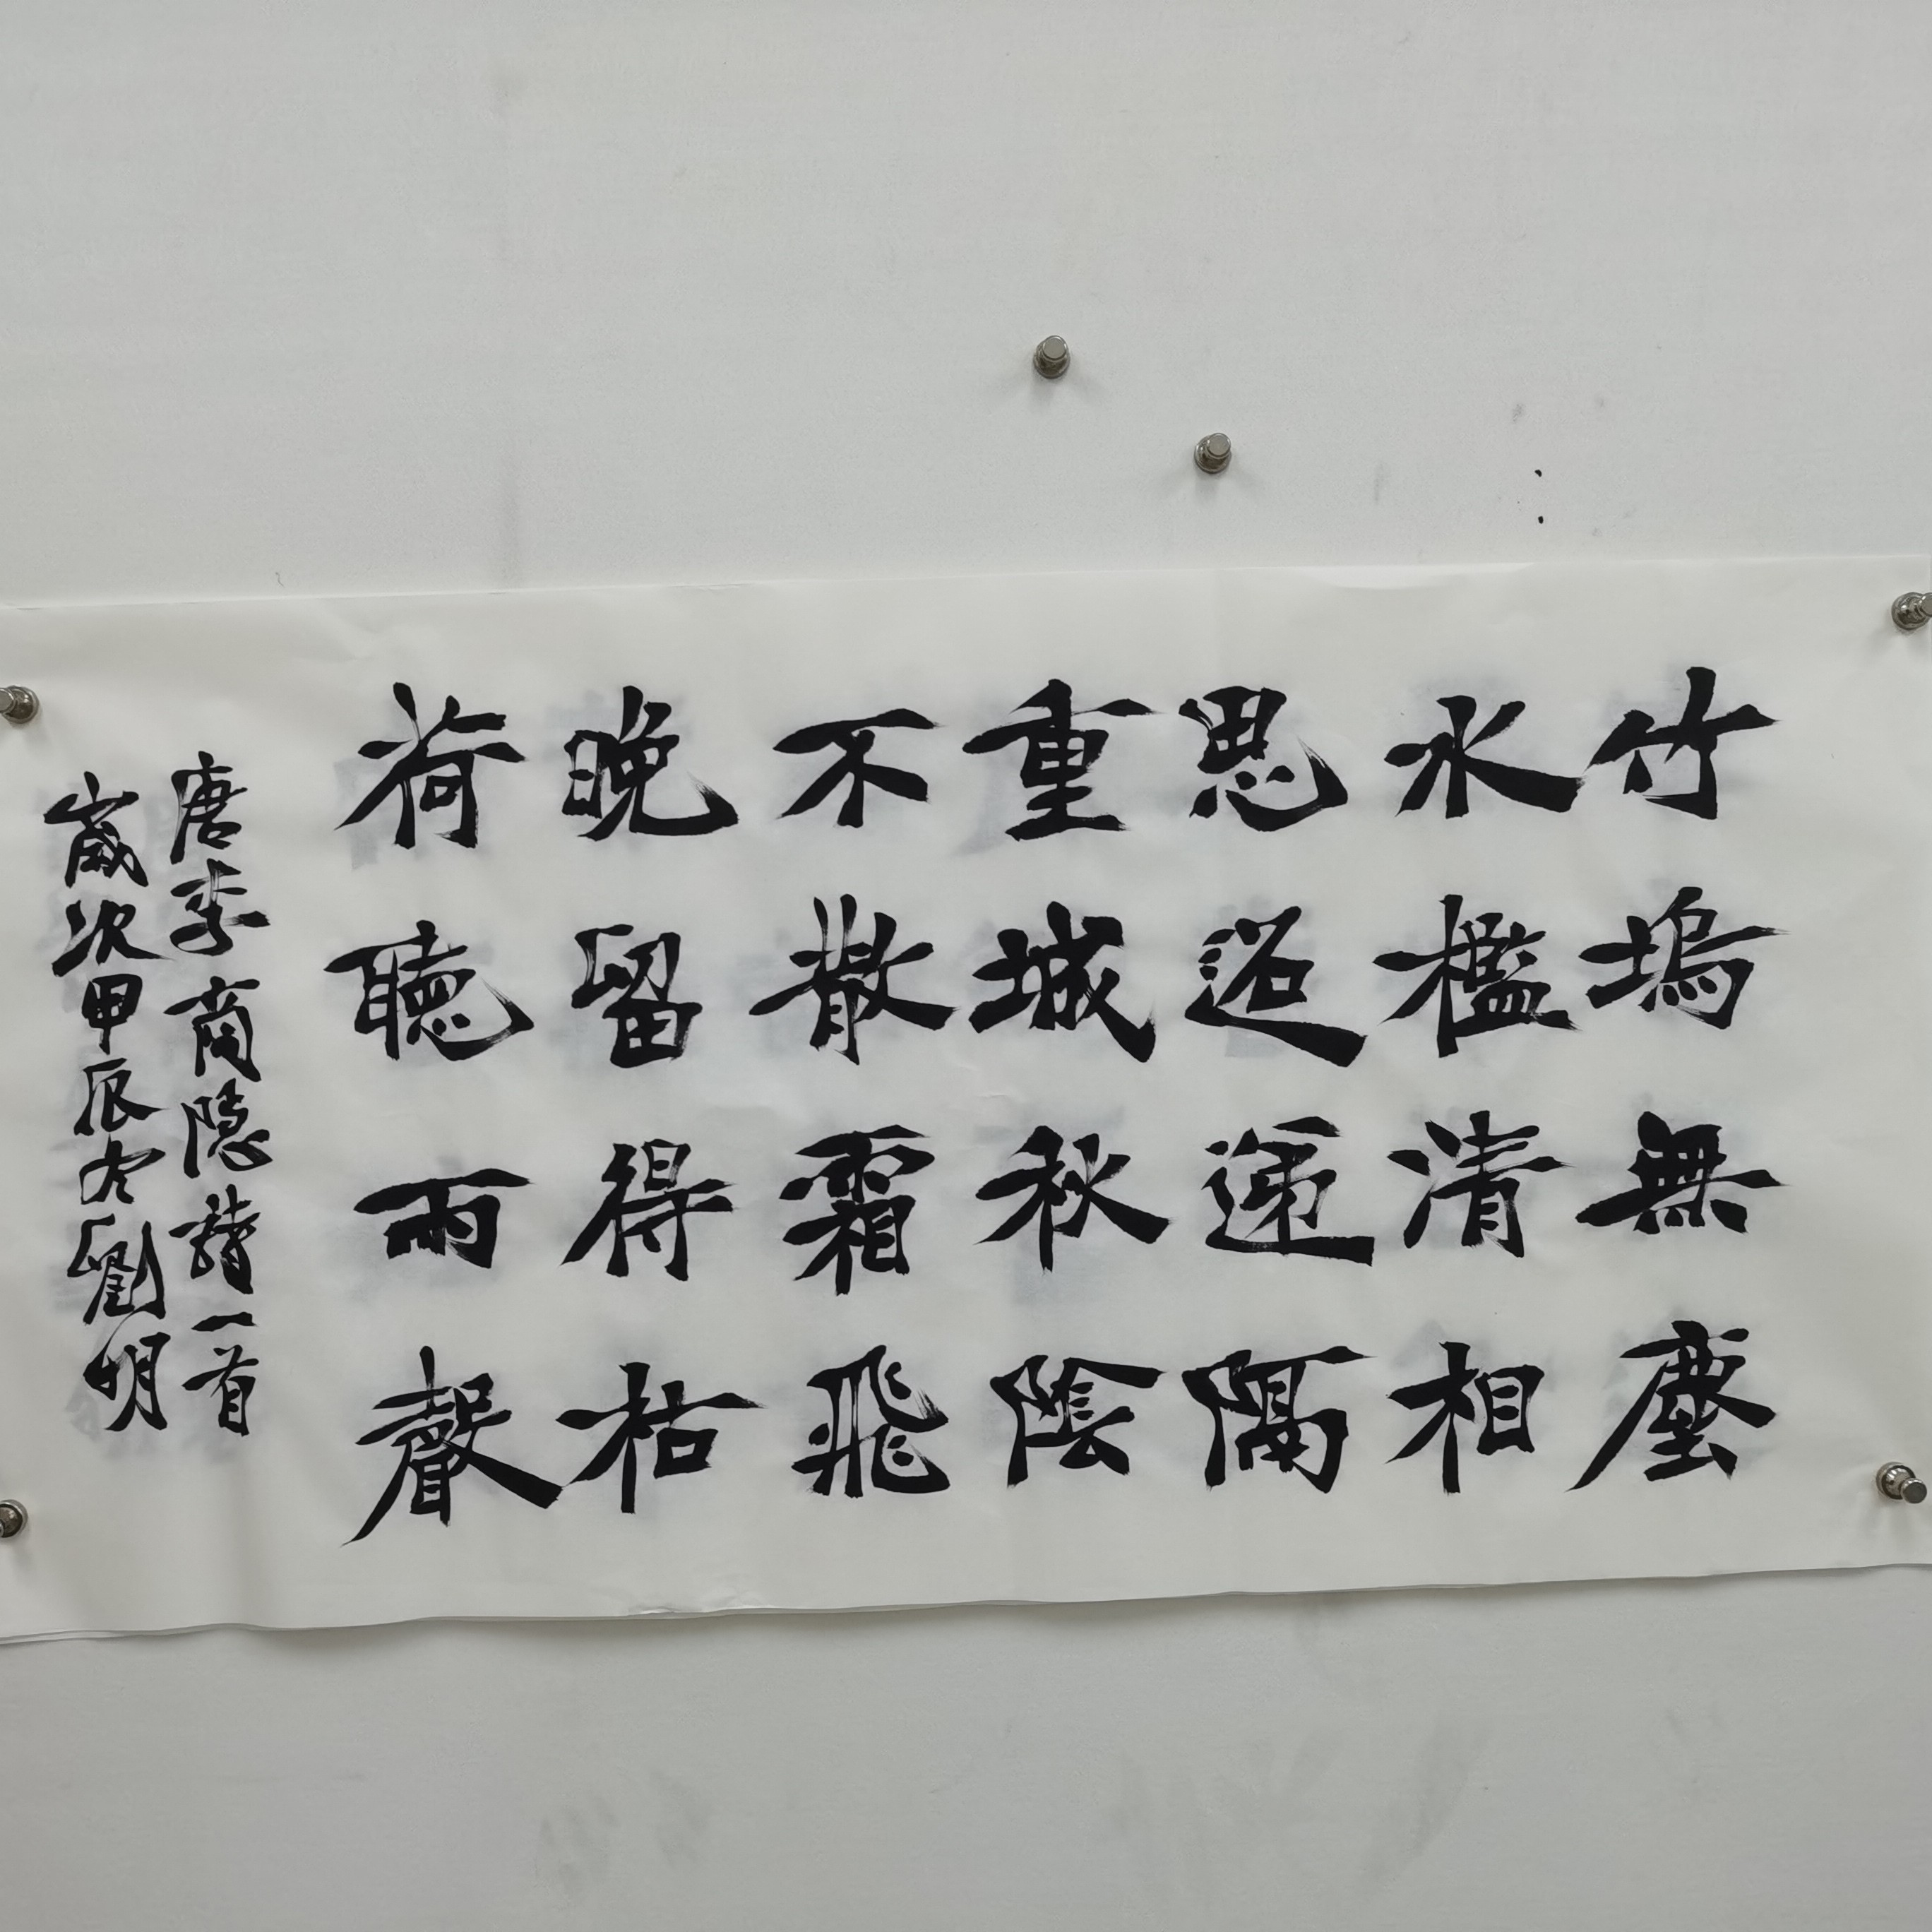 竹塢無塵
水檻清相
思迢递隔
重城秋陰
不散霜飛
晚留得枯
荷聽雨聲
唐李商隐詩一首
歲次甲辰冬劉明